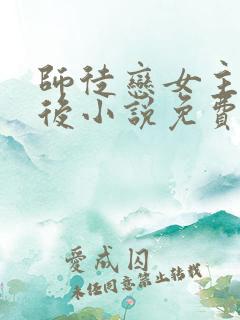 師徒戀女主
後小說免費
愛成囚
未經同意禁止轉載